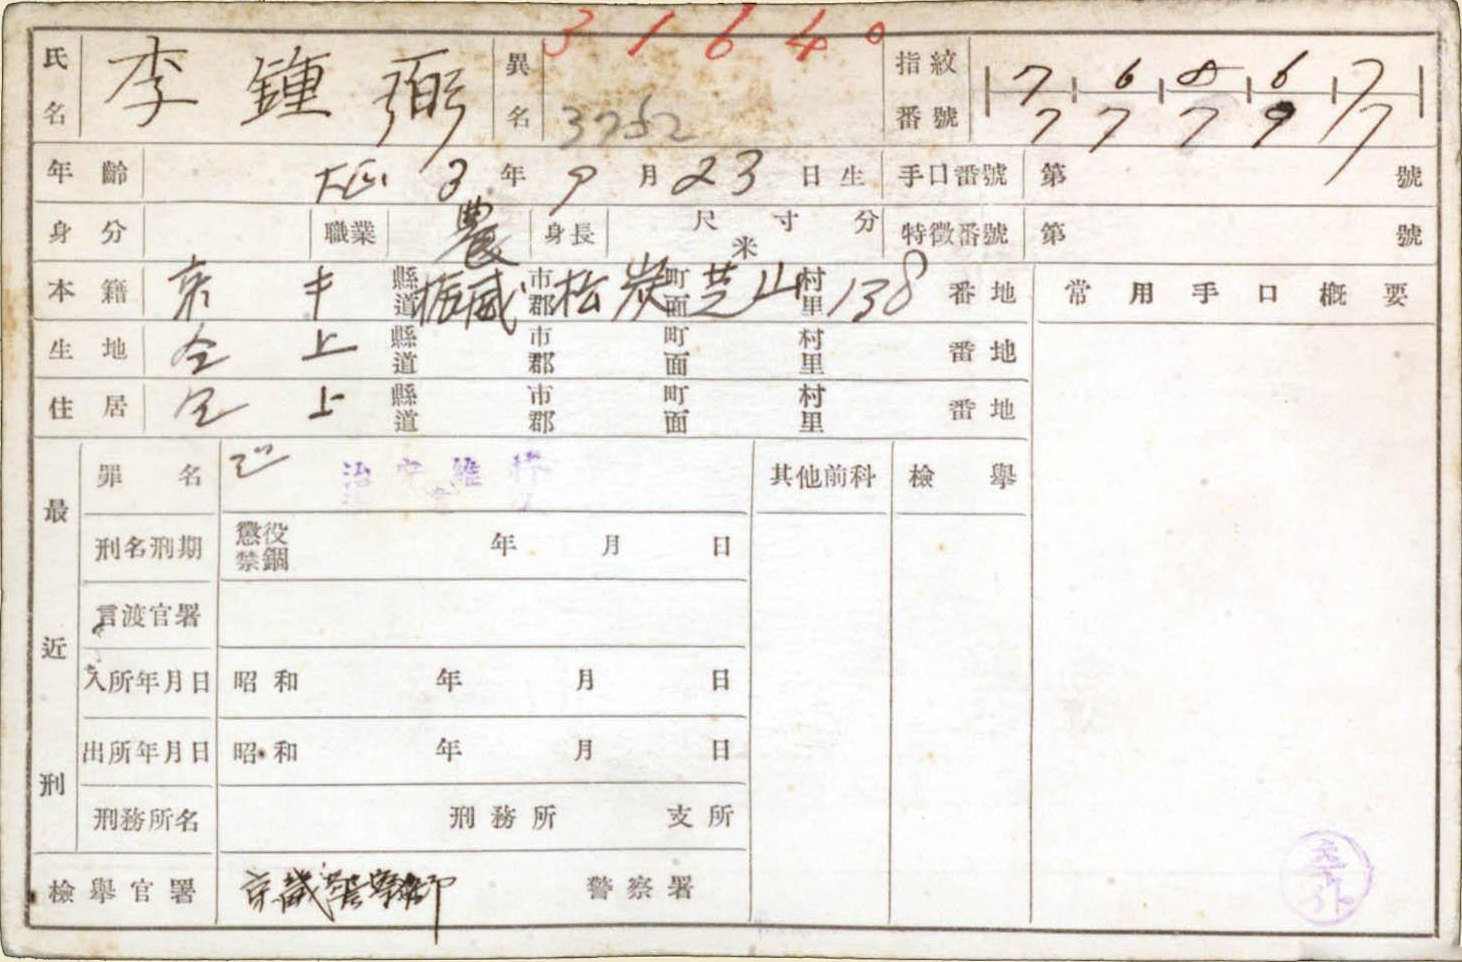 31640
氏名 李鍾弼 異名 3752 指紋番號 7 6 8 6 7
7 7 7 9 7
年齡 大正 3年 9月23日生 手口番號 第 號
身分 職業 農 身長 尺寸分 米 特徴番號 第 號
本籍 京キ 縣道 振威 市郡 松炭 町面 芝山 村里 138 番地 常用手口概要
生地 仝上 縣道 市郡 町面 村里 番地
住居 仝上 縣道 市郡 町面 村里 番地
最近刑 罪名 治安維持 其他前科 檢擧
刑名刑期 懲役 禁錮 年月日
言渡官署
入所年月日 昭和 年月日
出所年月日 昭和 年月日
刑務所名 刑務所 支所
檢擧官署 警察署